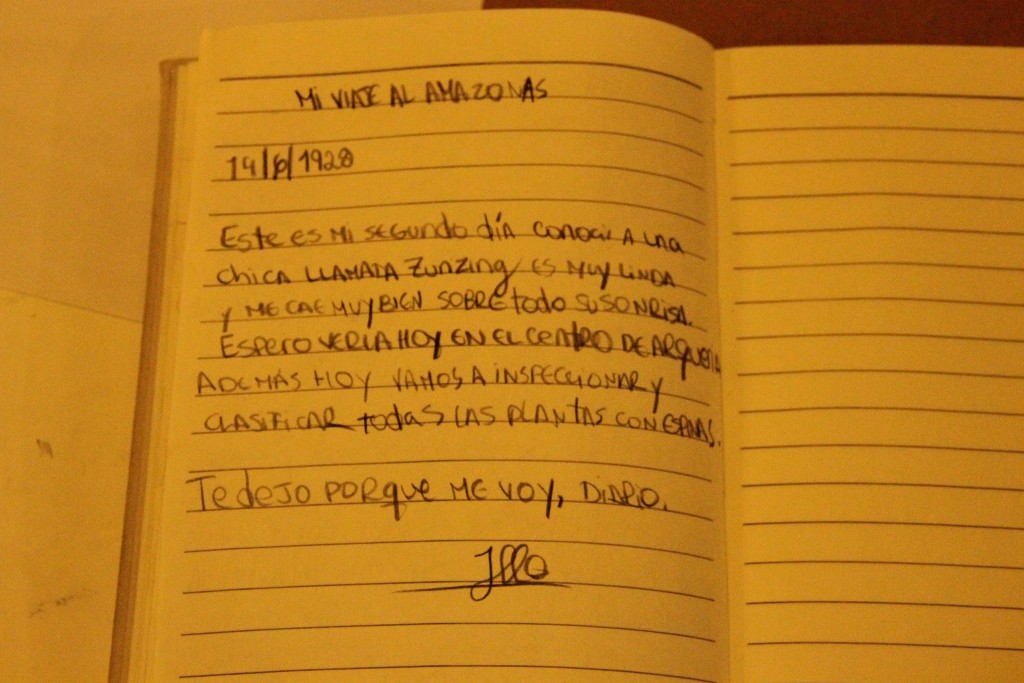 MI VIAJE AL AMAZONAS
14/6/1928
Este es mi segundo día conocí a una
chica LLAMADA Zunzing es muy linda
y me cae muy bien sobre todo su sonrisa.
Espero verla hoy en el centro de
Además hoy vamos a inspeccionar y
clasificar todas las plantas con
Te dejo porque me voy, Diario.